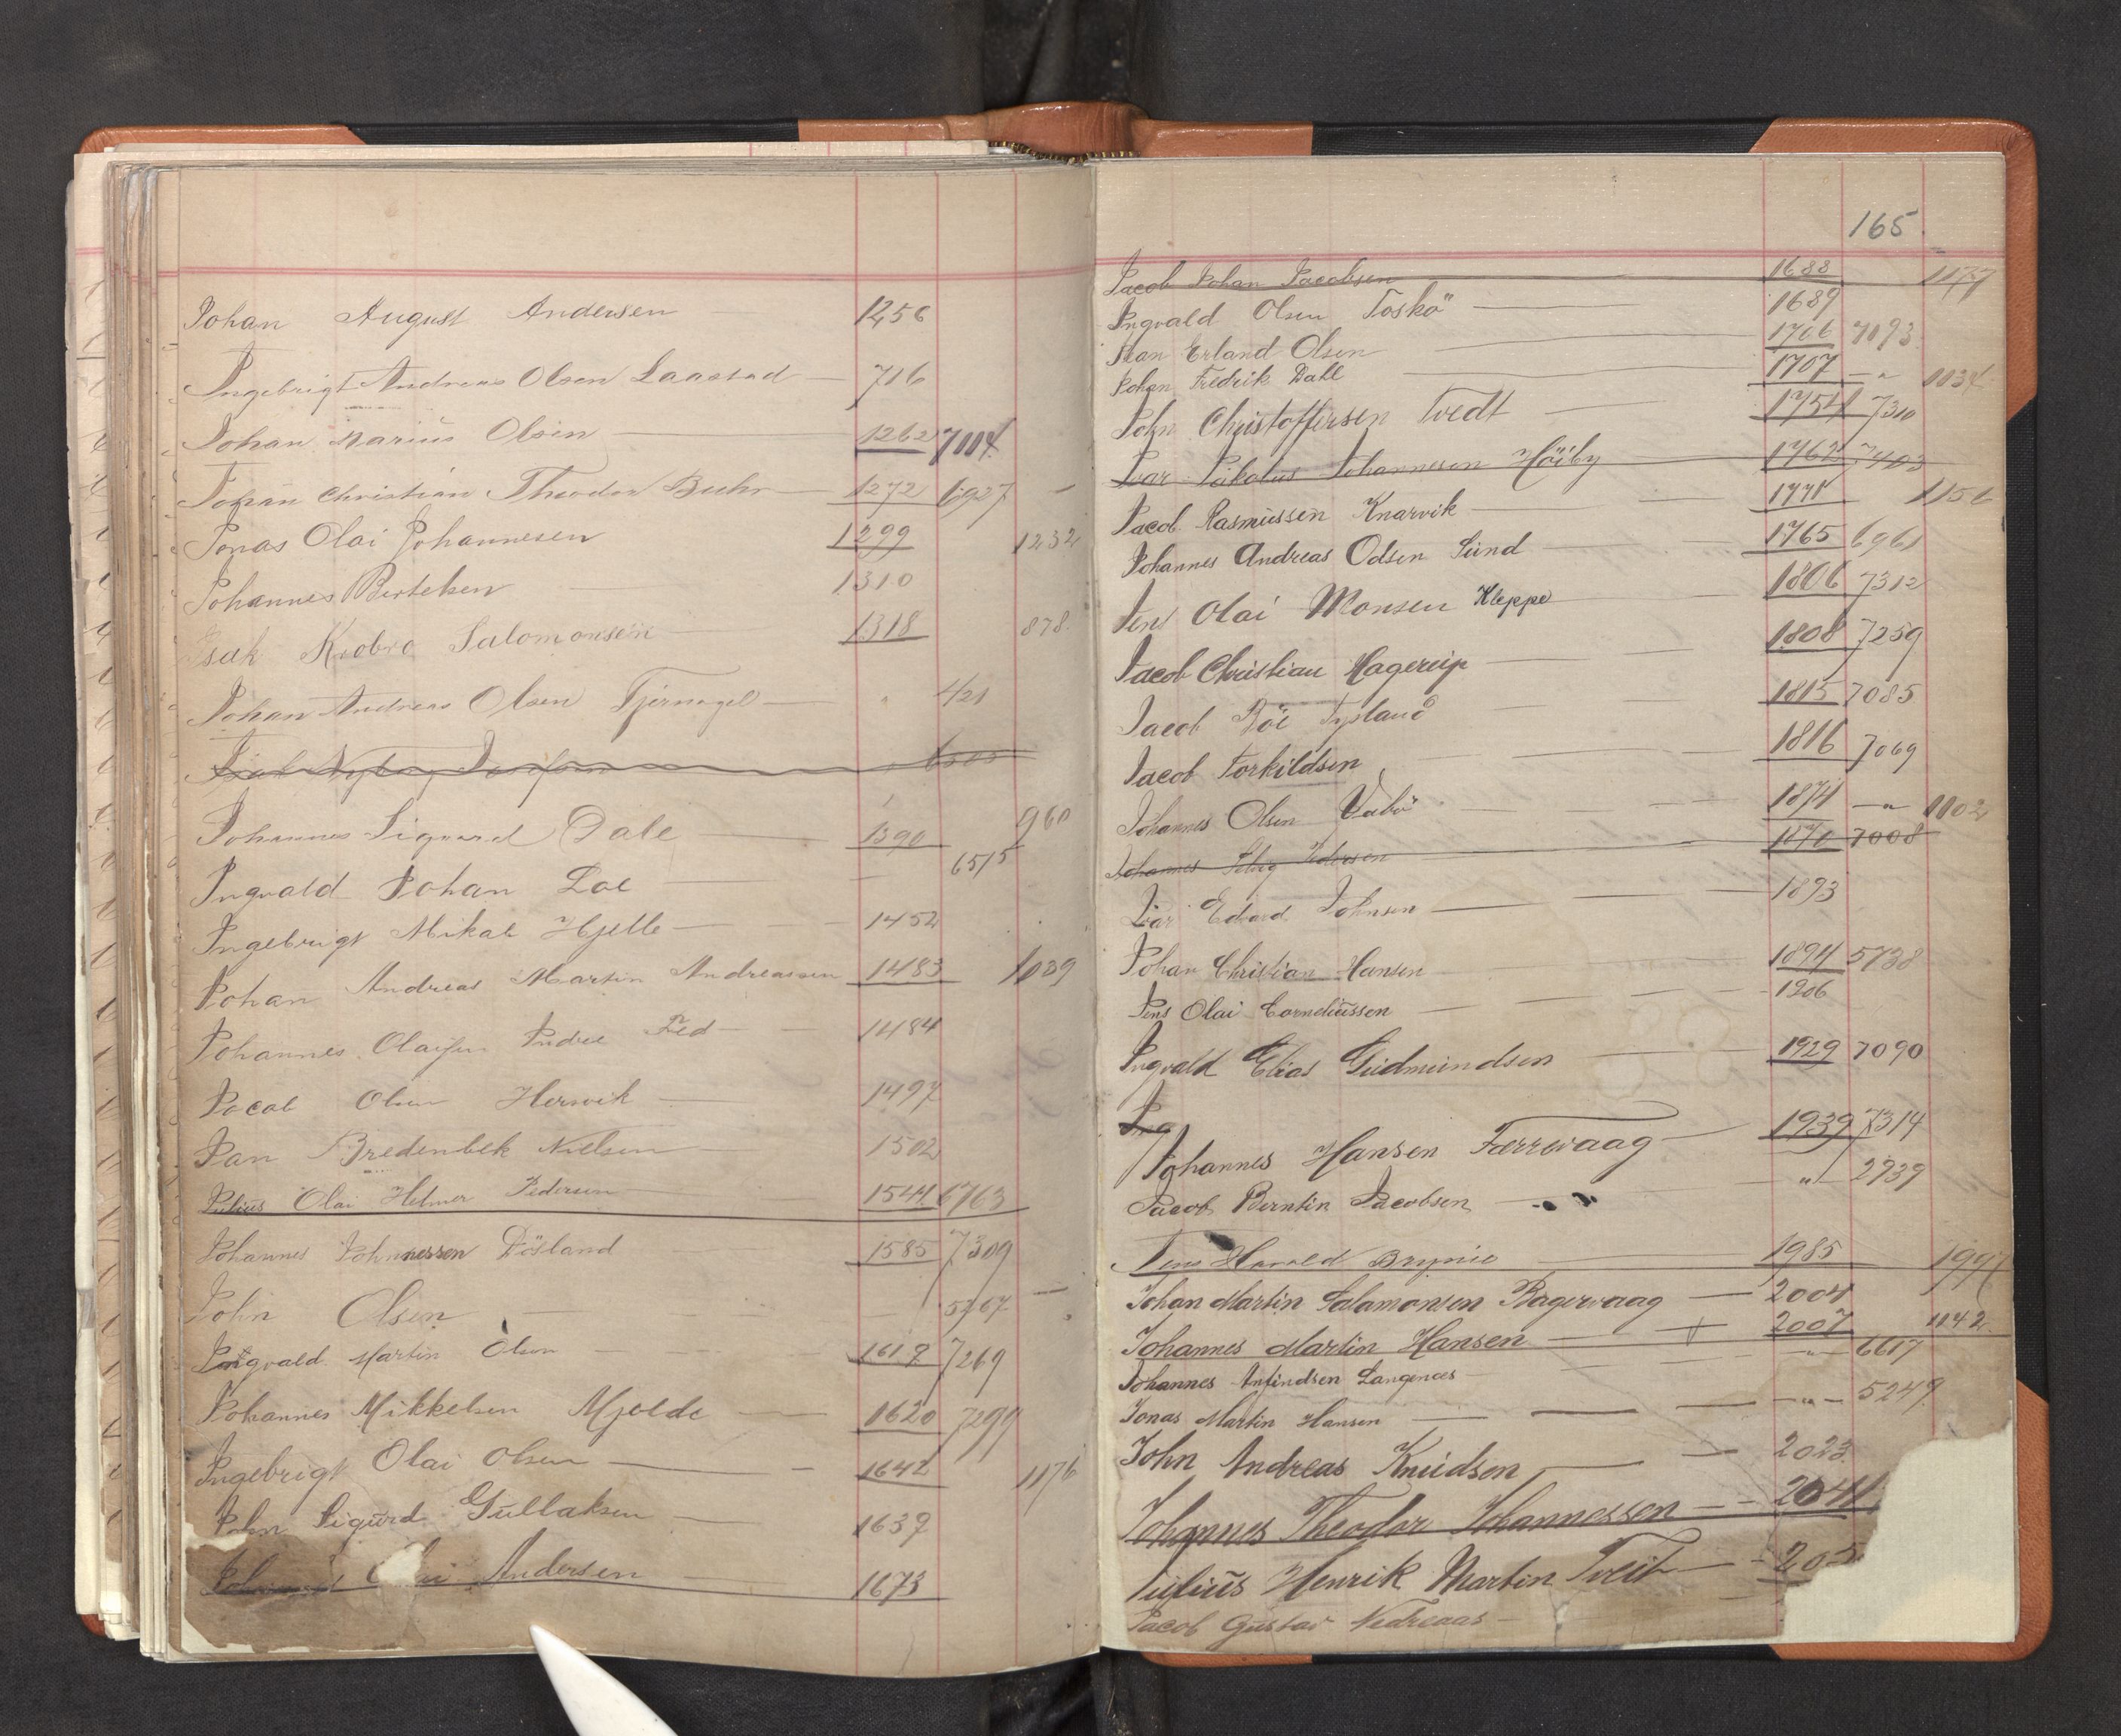 Johan August Andersen 1256
Ingebrigt Andreas Olsen Laastad 716
Johan Marius Olsen 1262 7004
Johan Christian Theodor Buhr 1272 6927
Jonas Olai Johannesen 1299 1232
Johannes Bertelsen 1310
Isak Krobro Salomonsen 1318 878
Johan Andreas Olsen Tjernagel " 421
Johannes Sigvard Dale 1390 960
Ingvald Johan Loe 6515
Ingebrigt Mikal Hjelle 1452
Johan Andreas Martin Andreassen 1483 1039
Johannes Olaisen 1484
Jacob Olsen Hervik 1497
Jan Bredenbek Nielsen 1502
Julius Olai Helmer Pedersen 1544 6763
Johannes Johannessen Dösland 1585 7309
John Olsen
Ingvald Martin Olsen 7269
Johannes Mikkelsen Mjelde 1620 7299
Ingebrigt Olai Olsen 1642 1176
John Sigurd Gullaksen 1639
Andersen 1673
165
Jacob Johan Jacobsen 1688 1177
Ingvald Olsen Toskö 1689
Jean Erland Olsen 1706 7093
Johan Fredrik Dahl 1707 - " 1034
John Christoffersen Tvedt 1754 7310
Ivar Johannesen Höiby 1762 7403
Jacob Rasmussen Knarvik 1771 1156
Johannes Andreas Odsen Sund 1765 6961
Jens Olai Monsen Kleppe 1806 7312
Jacob Christian Hagerup 1808 7259
Jacob Böe Tysland 1815 7085
Jacob Torkildsen 1816 7069
Johannes Olsen Vabö 1874 - " 1102
Johannes Pedersen 7008
Ivar Edvard Johnsen 1893
Johan Christian Hansen 1894 5738
Jens Olai Corneliussen 1906
Ingvald Elias Gudmundsen 1929 7090
Ing
Johannes Hansen Færrevaag 1939 7314
Jacob Berntin Jacobsen " 2939
Jens Harald Brynie 1985
Johan Martin Salamonsen Bagervaag 2004
Johannes Martin Hansen 2007 1142
Johannes Anfindsen Langenes " 6617
Jonas Martin Hansen - " - 5249
John Andreas Knudson 2023
Johannes Theodor Johannessen 2041
Julius Henrik Martin Tveit 205
Jacob Gustav Nedreaas